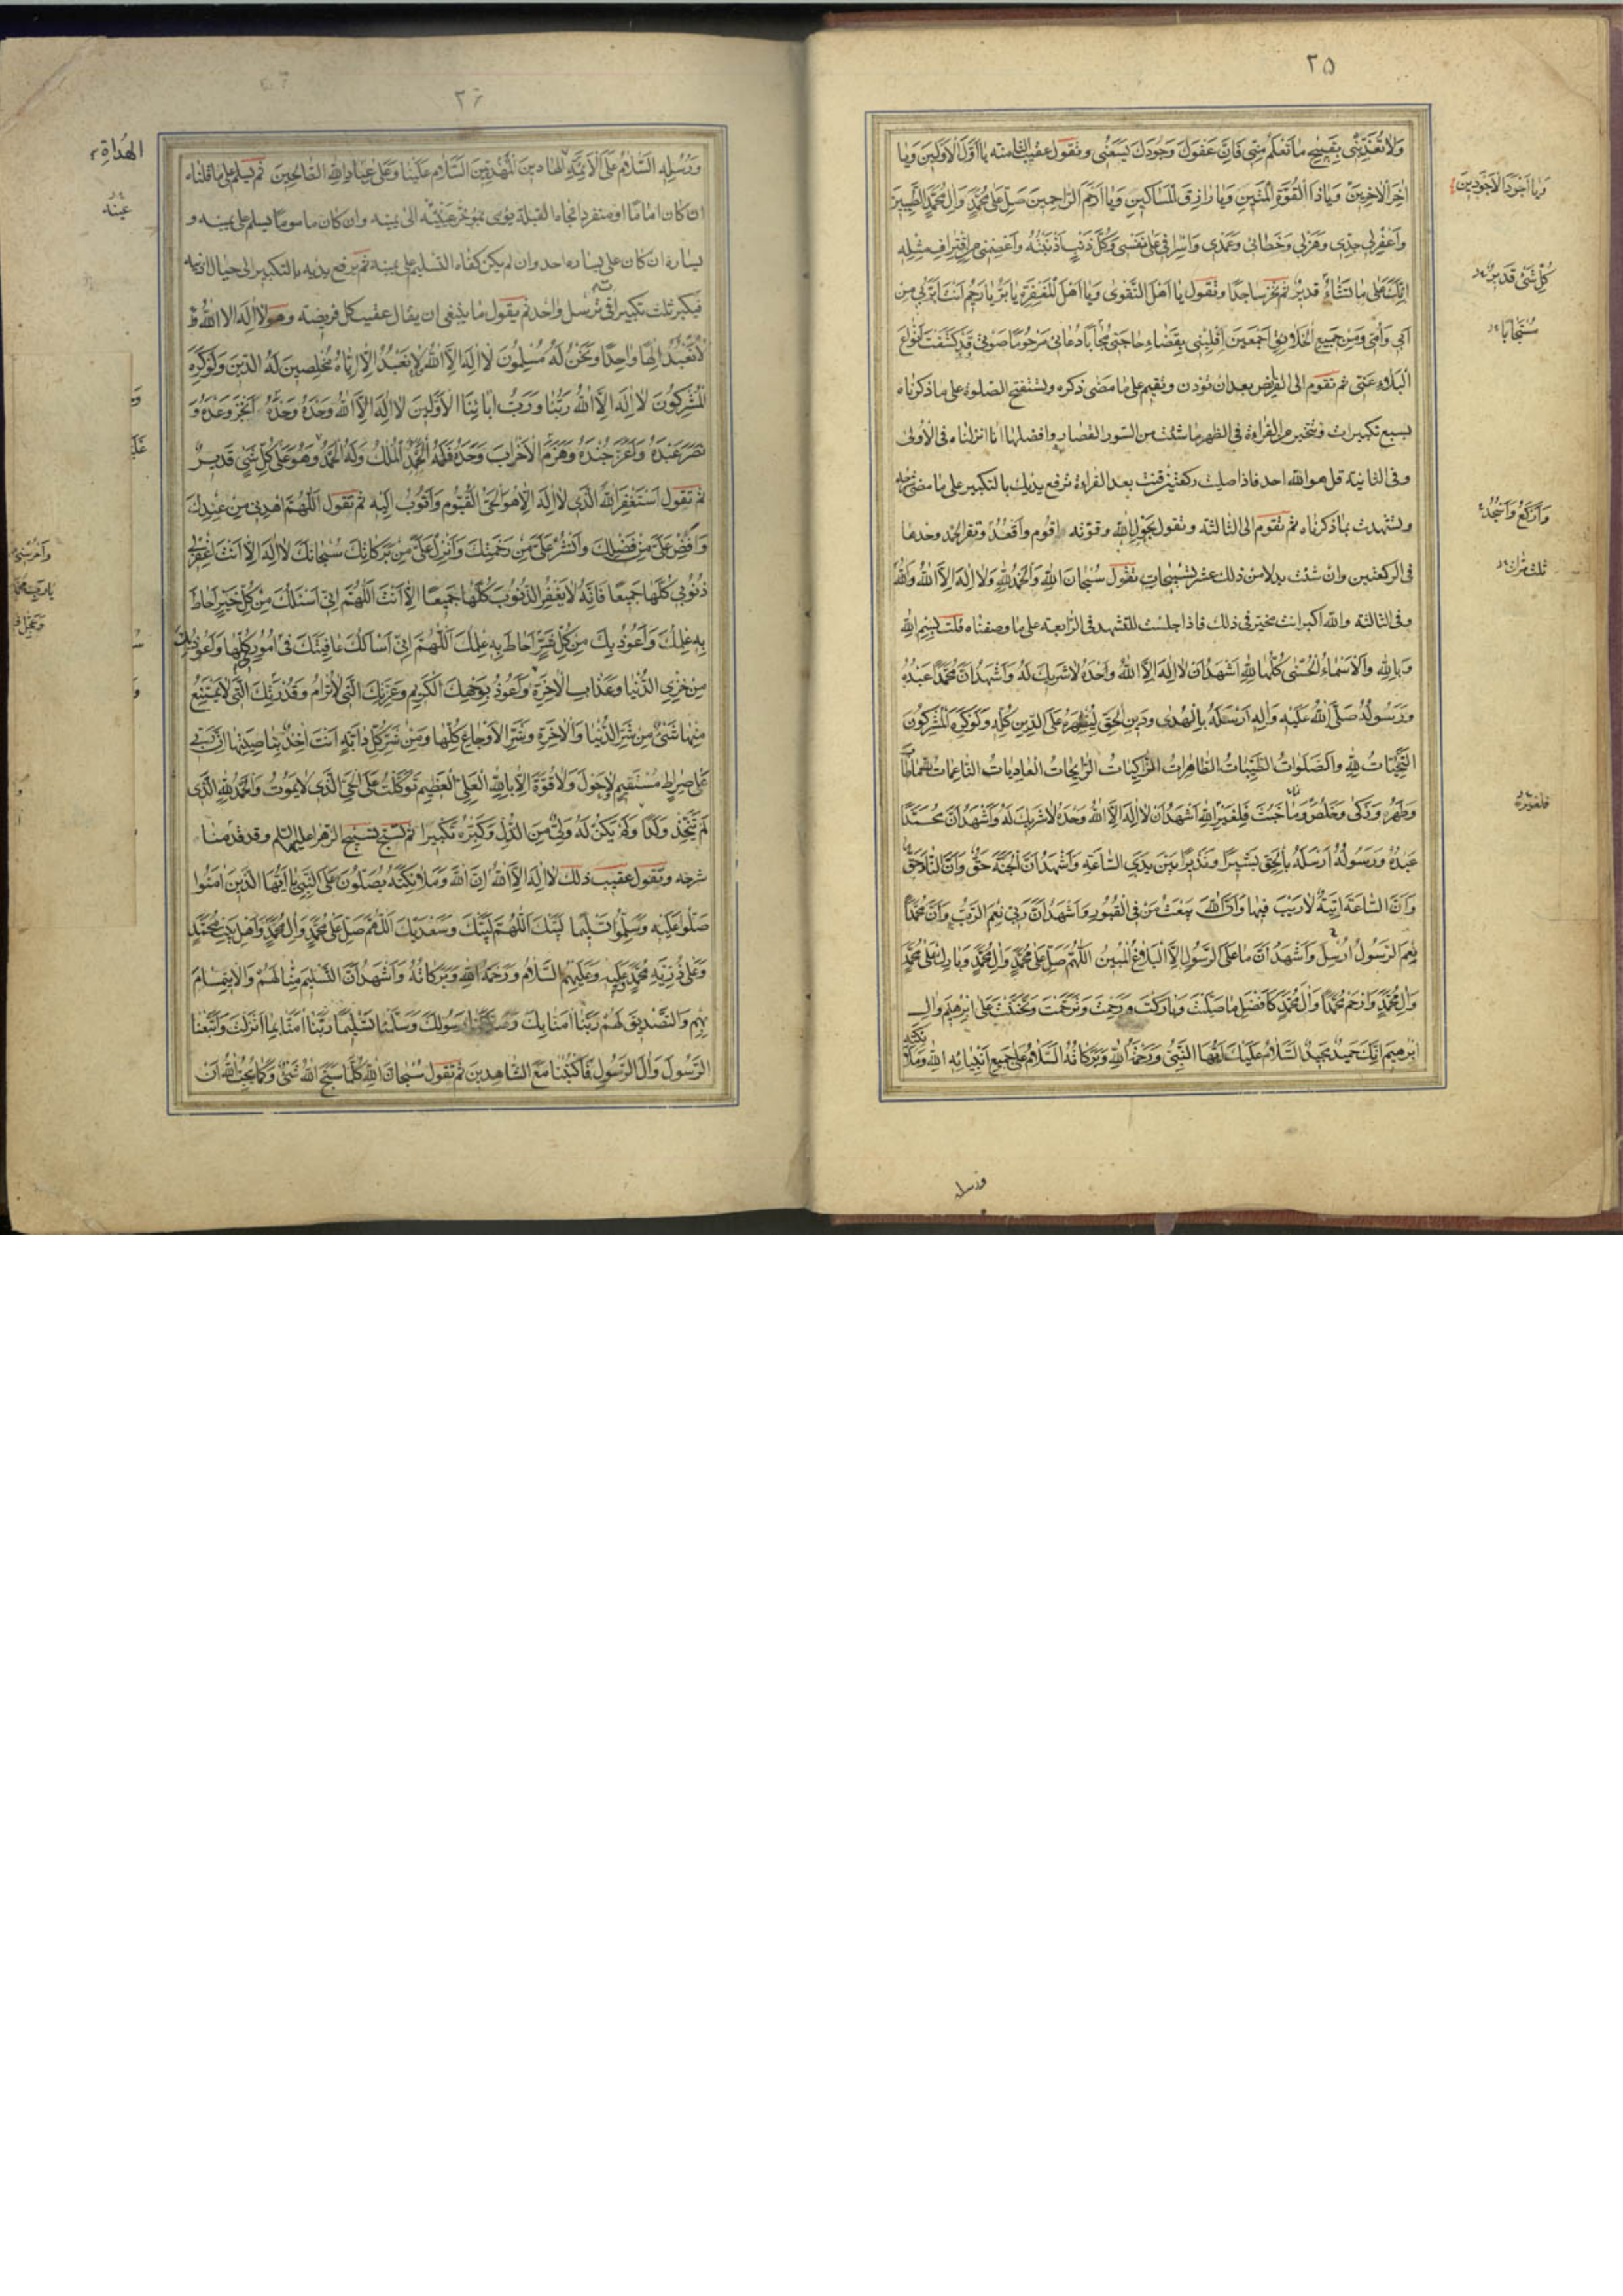 ٢٥
وَلا تُعَذِّبْنى بِقَبيحِ ما تَعْلَمُ مِنّى فَاِنَّ عَفْوَكَ وَجُودَكَ يَسَعُنى وتقول عقيب الثامنة يا اَوَّلَ الْاَوَّلينَ وَيا
اخِرَ الْاخِرينَ وَيا ذَا الْقُوَّةِ الْمَتينِ وَيا رازِقَ الْمَساكينِ وَيا اَرْحَمَ الرّاحِمينَ صَلِّ عَلى مُحَمَّدٍ وَالِ مُحَمَّدٍ الطَّيِّبينَ
وَيا اَجْوَدَ الْاَجْوَدينَ
وَاغْفِرْ لى جِدّى وَهَزْلى وَخَطائى وَعَمْدى وَاِسْرافى عَلى نَفْسى وَكُلَّ ذَنْبٍ اَذْنَبْتُهُ وَاعْصِمْنى مِنِ اقْتِرافِ مِثْلِهِ
اِنَّكَ عَلى ما تَشاءُ قَديرٌ ثم تخر ساجدا وتقول يا اَهْلَ التَّقْوى وَيا اَهْلَ الْمَغْفِرَةِ يا بَرُّ يا رَحيمُ اَنْتَ اَبَرُّ بى مِنْ
كُلِّ شَىْءٍ قَديرٌ
اَبى وَاُمّى وَمِنْ جَميعِ الْخَلائِقِ اَجْمَعينَ اِقْلِبْنى بِقَضاءِ حاجَتى مُجابًا دُعائى مَرْحُومًا صَوْتى قَدْ كَشَفْتَ اَنْواعَ
مُسْتَجابًا
الْبَلاءِ عَنّى ثم تقوم الى الفرض بعد ان تؤذن وتقيم على ما مضى ذكره وتستفتح الصلوة على ما ذكرناه
بسبع تكبيرات وتتخير من القراءة فى الظهر ما شئت من السور القصار وافضلها انا انزلناه فى الاولى
وفى الثانية قل هو الله احد فاذا صليت ركعتين قنت بعد القراءة ترفع يديك بالتكبير على ما مضى شرحه
وتشهدت بما ذكرناه ثم تقوم الى الثالثة وتقول بِحَوْلِ اللهِ وقوته اقوم واقعد وتقرء الحمد وحدها
وَاَرْكَعُ وَاَسْجُدُ
فى الركعتين وان شئت بدلا من ذلك عشر تسبيحات تقول سُبْحانَ اللهِ وَالْحَمْدُ لِلهِ وَلا اِلهَ اِلَّا اللهُ وَاللهُ
ثلث مرات
وفى الثالثة والله اكبر انت مخير فى ذلك فاذا جلست للتشهد فى الرابعة على ما وصفناه قلت بِسْمِ اللهِ
وَبِاللهِ وَالْاَسْماءُ الْحُسْنى كُلُّها لِلهِ اَشْهَدُ اَنْ لا اِلهَ اِلَّا اللهُ وَحْدَهُ لا شَريكَ لَهُ وَاَشْهَدُ اَنَّ مُحَمَّدًا عَبْدُهُ
وَرَسُولُهُ صَلَّى اللهُ عَلَيْهِ وَالِهِ اَرْسَلَهُ بِالْهُدى وَدينِ الْحَقِّ لِيُظْهِرَهُ عَلَى الدّينِ كُلِّهِ وَلَوْ كَرِهَ الْمُشْرِكُونَ
التَّحِيّاتُ لِلهِ وَالصَّلَواتُ الطَّيِّباتُ الطّاهِراتُ الزّاكِياتُ الرّايِحاتُ الْغادِياتُ النّاعِماتُ لِلهِ ما طابَ
وَطَهُرَ وَزَكى وَخَلُصَ وَما خَبُثَ فَلِغَيْرِ اللهِ اَشْهَدُ اَنْ لا اِلهَ اِلَّا اللهُ وَحْدَهُ لا شَريكَ لَهُ وَاَشْهَدُ اَنَّ مُحَمَّدًا
فلغيره
عَبْدُهُ وَرَسُولُهُ اَرْسَلَهُ بِالْحَقِّ بَشيرًا وَنَذيرًا بَيْنَ يَدَىِ السّاعَةِ وَاَشْهَدُ اَنَّ الْجَنَّةَ حَقٌّ وَاَنَّ النّارَ حَقٌّ
وَاَنَّ السّاعَةَ اتِيَةٌ لا رَيْبَ فيها وَاَنَّ اللهَ يَبْعَثُ مَنْ فِى الْقُبُورِ وَاَشْهَدُ اَنَّ رَبّى نِعْمَ الرَّبُّ وَاَنَّ مُحَمَّدًا
نِعْمَ الرَّسُولُ اُرْسِلَ وَاَشْهَدُ اَنَّ ما عَلَى الرَّسُولِ اِلَّا الْبَلاغُ الْمُبينُ اَللّهُمَّ صَلِّ عَلى مُحَمَّدٍ وَالِ مُحَمَّدٍ وَبارِكْ عَلى مُحَمَّدٍ
وَالِ مُحَمَّدٍ وَارْحَمْ مُحَمَّدًا وَالَ مُحَمَّدٍ كَاَفْضَلِ ما صَلَّيْتَ وَبارَكْتَ وَرَحِمْتَ وَتَرَحَّمْتَ وَتَحَنَّنْتَ عَلى اِبْرهيمَ وَالِ
اِبْرهيمَ اِنَّكَ حَميدٌ مَجيدٌ السَّلامُ عَلَيْكَ اَيُّهَا النَّبِىُّ وَرَحْمَةُ اللهِ وَبَرَكاتُهُ السَّلامُ عَلى جَميعِ اَنْبِيائِهِ اللهِ وَمَلائِكَتِهِ
ورسله
٢٦
وَرُسُلِهِ السَّلامُ عَلَى الْاَئِمَّةِ الْهادينَ الْمَهْدِيّينَ السَّلامُ عَلَيْنا وَعَلى عِبادِ اللهِ الصّالِحينَ ثم يسلم على ما قلناه
الْهُداةِ
ان كان اماما او منفردا تجاه القبلة يومى بمؤخر عينيه الى يمينه وان كان ماموما يسلم على يمينه و
عينه
يساره ان كان على يساره احد وان لم يكن كفاه التسليم على يمينه ثم يرفع يديه بالتكبير الى حيال اذنيه
فيكبر ثلث تكبيرات فى ترسل واحد ثم يقول ما ينبغى ان يقال عقيب كل فريضة وهو لا اله الا الله
اِلهًا واحِدًا وَنَحْنُ لَهُ مُسْلِمُونَ لا اِلهَ اِلَّا اللهُ لا نَعْبُدُ اِلّا اِيّاهُ مُخْلِصينَ لَهُ الدّينَ وَلَوْ كَرِهَ
الْمُشْرِكُونَ لا اِلهَ اِلَّا اللهُ رَبُّنا وَرَبُّ ابائِنَا الْاَوَّلينَ لا اِلهَ اِلَّا اللهُ وَحْدَهُ وَحْدَهُ اَنْجَزَ وَعْدَهُ وَ
نَصَرَ عَبْدَهُ وَاَعَزَّ جُنْدَهُ وَهَزَمَ الْاَحْزابَ وَحْدَهُ فَلَهُ الْمُلْكُ وَلَهُ الْحَمْدُ وَهُوَ عَلى كُلِّ شَىْءٍ قَديرٌ
ثم تقول اَسْتَغْفِرُ اللهَ الَّذى لا اِلهَ اِلّا هُوَ الْحَىُّ الْقَيُّومُ وَاَتُوبُ اِلَيْهِ ثم تقول اَللّهُمَّ اهْدِنى مِنْ عِنْدِكَ
وَاَفِضْ عَلَىَّ مِنْ فَضْلِكَ وَانْشُرْ عَلَىَّ مِنْ رَحْمَتِكَ وَاَنْزِلْ عَلَىَّ مِنْ بَرَكاتِكَ سُبْحانَكَ لا اِلهَ اِلّا اَنْتَ اغْفِرْ لى
ذُنُوبى كُلَّها جَميعًا فَاِنَّهُ لا يَغْفِرُ الذُّنُوبَ كُلَّها جَميعًا اِلّا اَنْتَ اَللّهُمَّ اِنّى اَسْئَلُكَ مِنْ كُلِّ خَيْرٍ اَحاطَ
بِهِ عِلْمُكَ وَاَعُوذُ بِكَ مِنْ كُلِّ شَرٍّ اَحاطَ بِهِ عِلْمُكَ اَللّهُمَّ اِنّى اَسْاَلُكَ عافِيَتَكَ فى اُمُورى كُلِّها وَاَعُوذُ بِكَ
مِنْ خِزْىِ الدُّنْيا وَعَذابِ الْاخِرَةِ وَاَعُوذُ بِوَجْهِكَ الْكَريمِ وَعِزَّتِكَ الَّتى لا تُرامُ وَقُدْرَتِكَ الَّتى لا يَمْتَنِعُ
مِنْها شَىْءٌ مِنْ شَرِّ الدُّنْيا وَالْاخِرَةِ وَشَرِّ الْاَوْجاعِ كُلِّها وَمِنْ شَرِّ كُلِّ دابَّةٍ اَنْتَ اخِذٌ بِناصِيَتِها اِنَّ رَبّى
عَلى صِراطٍ مُسْتَقيمٍ لا حَوْلَ وَلا قُوَّةَ اِلّا بِاللهِ الْعَلِىِّ الْعَظيمِ تَوَكَّلْتُ عَلَى الْحَىِّ الَّذى لا يَمُوتُ وَالْحَمْدُ لِلهِ الَّذى
لَمْ يَتَّخِذْ وَلَدًا وَلَمْ يَكُنْ لَهُ وَلِىٌّ مِنَ الذُّلِّ وَكَبِّرْهُ تَكْبيرًا ثم تسبح تسبيح الزهرا عليها السلم وقد قدمنا
شرحه وتقول عقيب ذلك لا اِلهَ اِلَّا اللهُ اِنَّ اللهَ وَمَلائِكَتَهُ يُصَلُّونَ عَلَى النَّبِىِّ يا اَيُّهَا الَّذينَ امَنُوا
صَلُّوا عَلَيْهِ وَسَلِّمُوا تَسْليمًا لَبَّيْكَ اَللّهُمَّ لَبَّيْكَ وَسَعْدَيْكَ اَللّهُمَّ صَلِّ عَلى مُحَمَّدٍ وَالِ مُحَمَّدٍ وَاَهْلِ بَيْتِ مُحَمَّدٍ
وَعَلى ذُرِّيَّةِ مُحَمَّدٍ عَلَيْهِ وَعَلَيْهِمُ السَّلامُ وَرَحْمَةُ اللهِ وَبَرَكاتُهُ وَاَشْهَدُ اَنَّ التَّسْليمَ مِنّا لَهُمْ وَالْايتِمامَ
بِهِمْ وَالتَّصْديقَ لَهُمْ رَبَّنا امَنّا بِكَ وَصَدَّقْنا رَسُولَكَ وَسَلَّمْنا تَسْليمًا رَبَّنا امَنّا بِما اَنْزَلْتَ وَاتَّبَعْنَا
الرَّسُولَ وَالَ الرَّسُولِ فَاكْتُبْنا مَعَ الشّاهِدينَ ثم تقول سُبْحانَ اللهِ كُلَّما سَبَّحَ اللهَ شَىْءٌ وَكَما يُحِبُّ اللهُ اَنْ